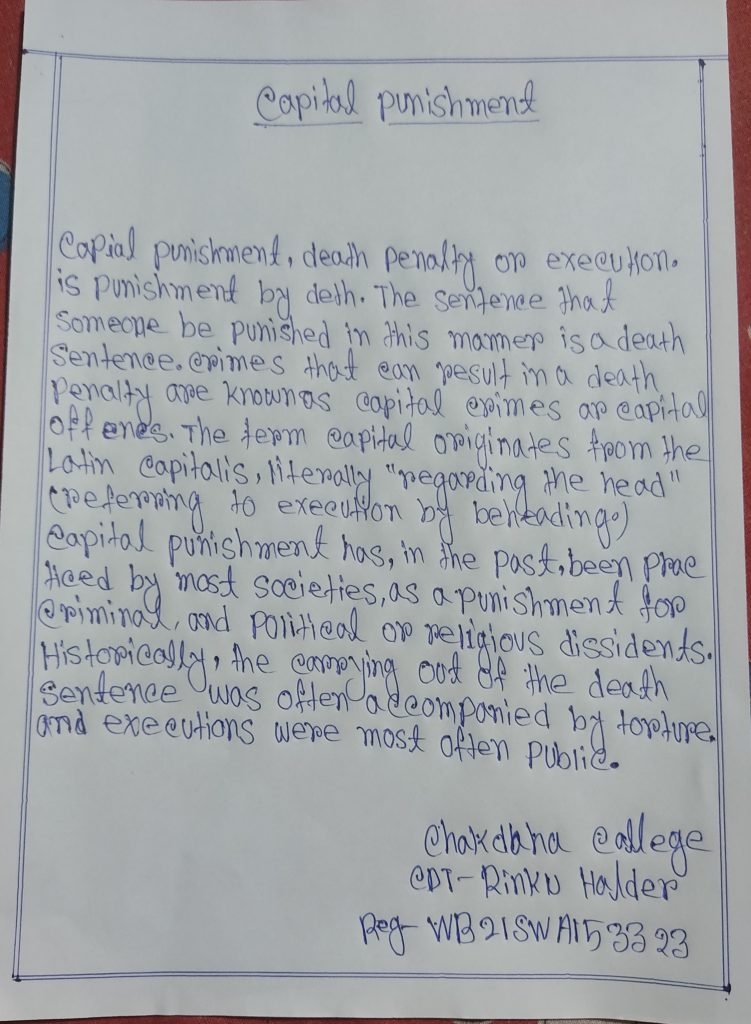 Capital punishment
Capial punishment, death penalty or execution.
is punishment by deth. The sentence that
someone be punished in this manner is a death
sentence. crimes that can result in a death
penalty are knownas capital crimes ar capital
offenes. The term capital originates from the
Latin capitalis, literally "regarding the head"
(referring to execution by beheading.)
capital punishment has, in the past, been prac
ticed by most societies, as a punishment for
criminal, and political or religious dissidents.
Historically, the carrying out of the death
sentence was often accompanied by torture.
and executions were most often public.
Chakdaha college
CDT- Rinku Halder
Reg- WB21SWA153323